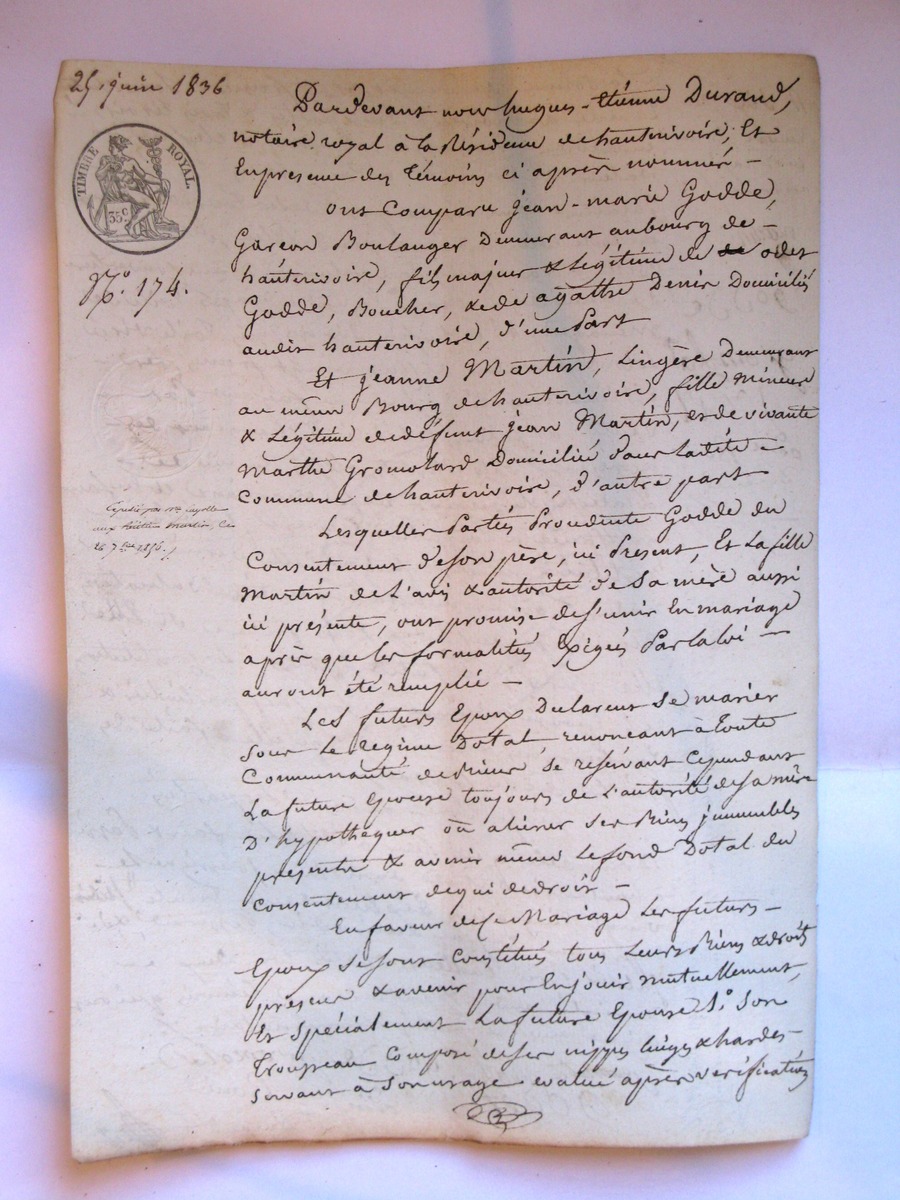 25 juin 1836
TIMBRE ROYAL.
35 c
N.° 174.
Pardevant nous hugues-Etienne Durand,
notaire royal à la Résidence de hauterivoire, Et
En presence des Témoins ci après nommés —
ont Comparu jean-marie Godde,
Garcon Boulanger Demeurant au bourg de —
hauterivoire, fils majeur & Légitime de odet
Godde, Boucher, & de agathe Denis Domiciliés
audit hauterivoire, d'une Part
Et jeanne Martin, Lingère Demeurant
au même Bourg de hauterivoire, fille mineure
& Légitime de défunt jean Martin, et de vivante
marthe Domiciliée dans ladite —
Commune de hauterivoire, d'autre part
Lesquelles Parties Procédante Godde du
Consentement de son père, ici Present, Et La fille
Martin de L'avis & autorité de Sa mère aussi
ici présente, ont promis de s'unir En mariage
après que les formalités Exigés Par la loi —
auront été remplie —
Les futurs Epoux Déclarent se marier
sous Le regime Dotal, renoncant à toute
Communauté de Biens, se résérvant Cependant
La future Epouse toujours de L'autorité de sa mère
D'hypothequer ou aliéner ses Biens immeubles
présents & avenir même Le fond Dotal du
Consentement de qui de droit —
En faveur de ce Mariage Les futurs —
Epoux se sont Constitués tous Leurs Biens & droits
présens & avenir pour En jouir mutuellement,
Et Spécialement La future Epouse 1.° Son
Trousseau Composé de ses nippes linges & hardes —
servant à Son usage évalué après vérification